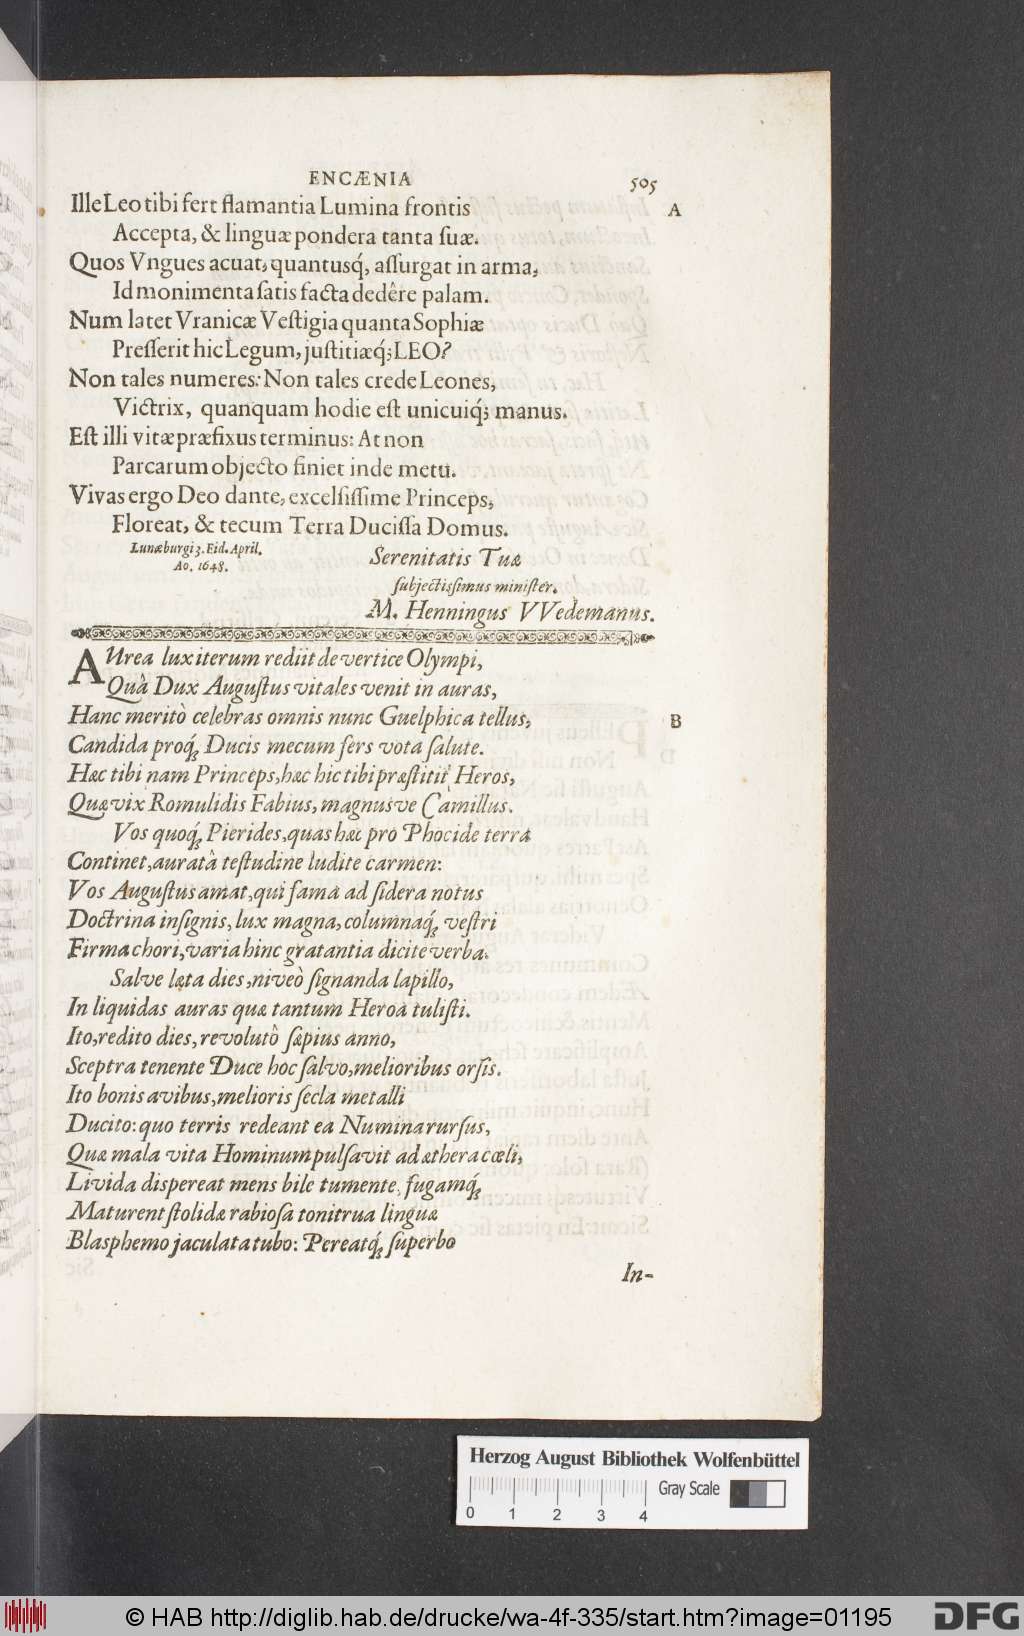 ENCÆNIA 505
Ille Leo tibi fert flamantia Lumina frontis A
Accepta, & linguæ pondera tanta ſuæ.
Quos Vngues acuat, quantusq́, aſſurgat in arma,
Id monimenta ſatis facta dedêre palam.
Num latet Vranicæ Veſtigia quanta Sophiæ
Preſſerit hic Legum, juſtitiæq́; LEO?
Non tales numeres: Non tales crede Leones,
Victrix, quanquam hodie eſt unicuiq́; manus.
Eſt illi vitæ præfixus terminus: At non
Parcarum objecto finiet inde metu.
Vivas ergo Deo dante, excelſiſſime Princeps,
Floreat, & tecum Terra Duciſſa Domus.
Lunæburgi 3. Eid. April.
Ao. 1648.
Serenitatis Tuæ
ſubjectiſſimus miniſter.
M. Henningus VVedemanus.
AUrea lux iterum rediit de vertice Olympi,
Quâ Dux Auguſtus vitales venit in auras,
Hanc meritò celebras omnis nunc Guelphica tellus, B
Candida proq́; Ducis mecum fers vota ſalute.
Hæc tibi nam Princeps, hæc hic tibi præſtitit Heros,
Quæ vix Romulidis Fabius, magnusve Camillus.
Vos quoq́; Pierides, quas hæc pro Phocide terra
Continet, auratâ teſtudine ludite carmen:
Vos Auguſtus amat, qui famâ ad ſidera notus
Doctrina inſignis, lux magna, columnaq́; veſtri
Firma chori, varia hinc gratantia dicite verba.
Salve læta dies, niveò ſignanda lapillo,
In liquidas auras quæ tantum Heroa tuliſti.
Ito, redito dies, revolutò ſæpius anno,
Sceptra tenente Duce hoc ſalvo, melioribus orſis.
Ito bonis avibus, melioris ſecla metalli
Ducito: quo terris redeant ea Numina rurſus,
Quæ mala vita Hominum pulſavit ad æthera cœli,
Livida dispereat mens bile tumente, fugamq́;
Maturent ſtolidæ rabioſa tonitrua linguæ
Blasphemo jaculata tubo: Pereatq́; ſuperbo
In-
Herzog August Bibliothek Wolfenbüttel
Gray Scale
0 1 2 3 4
© HAB http://diglib.hab.de/drucke/wa-4f-335/start.htm?image=01195
DFG